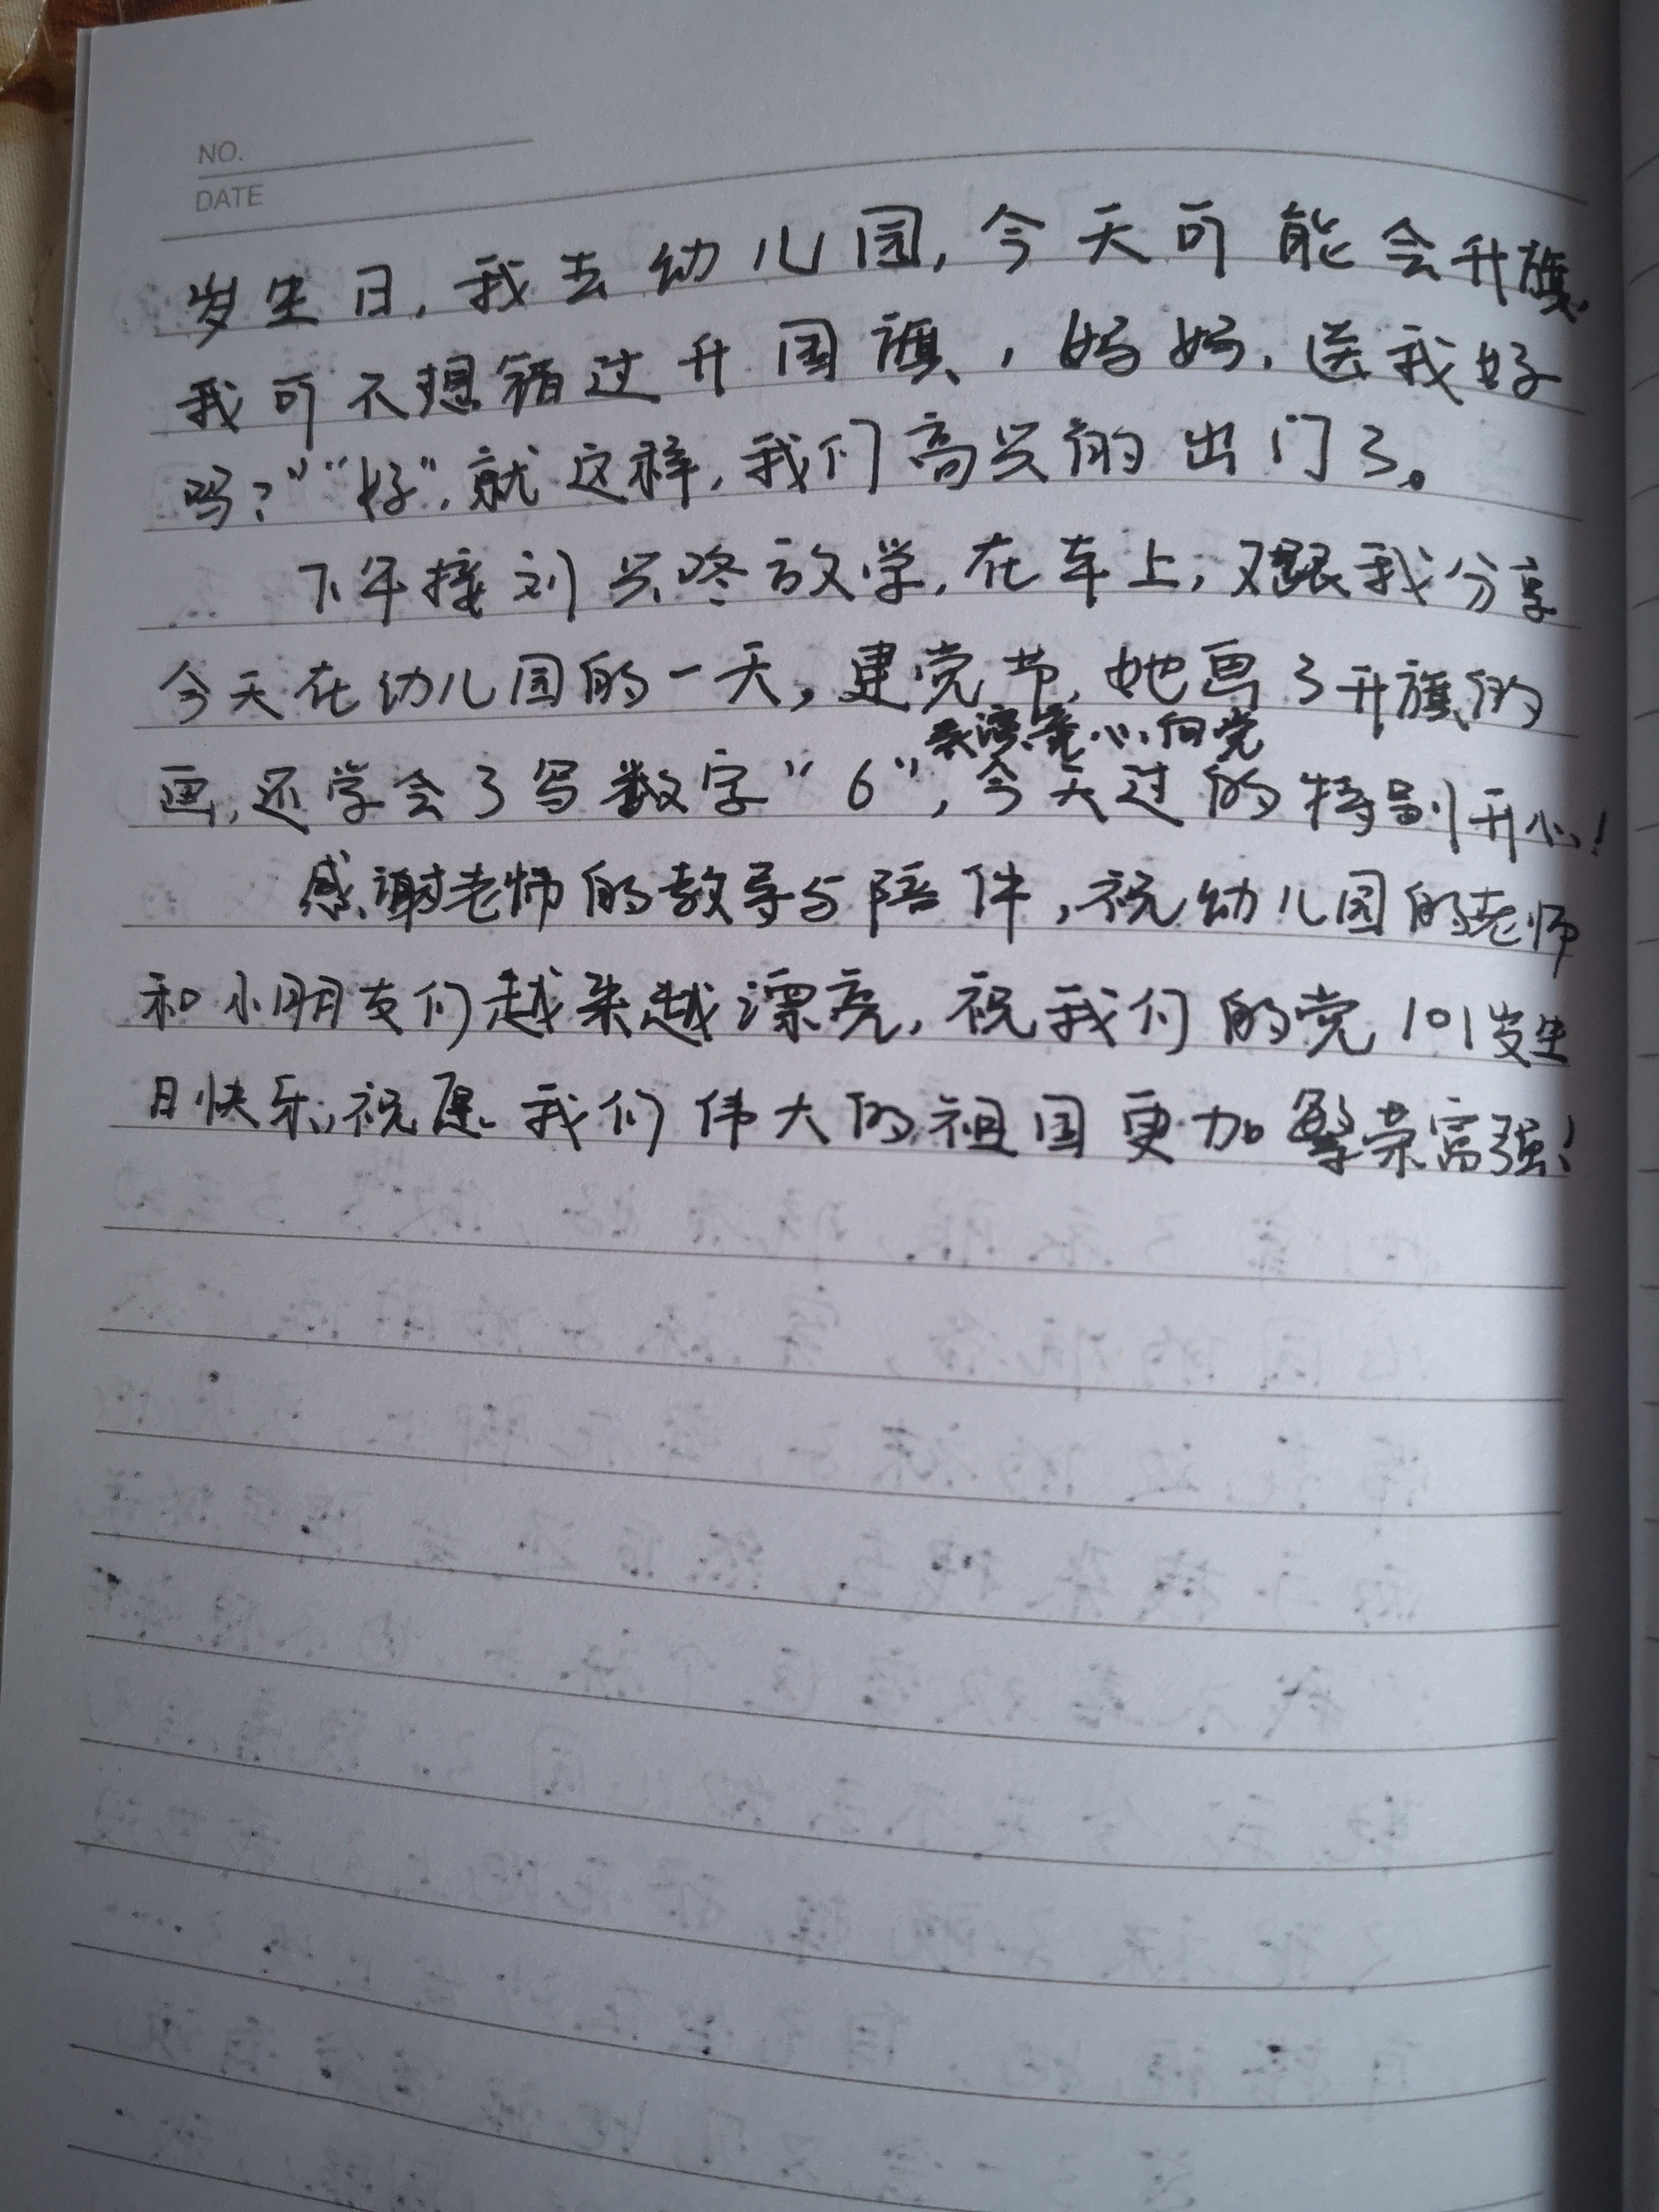 NO.
DATE
岁生日，我去幼儿园，今天可能会升旗，
我可不想错过升国旗，妈妈，送我好
吗？”“好”，就这样，我们高兴的出门了。
下午接刘兴咚放学，在车上，又跟我分享
今天在幼儿园的一天，建党节，她画了升旗的
表演童心向党
画，还学会了写数字“6”，今天过的特别开心！
感谢老师的教导与陪伴，祝幼儿园的老师
和小朋友们越来越漂亮，祝我们的党101岁生
日快乐，祝愿我们伟大的祖国更加繁荣富强！